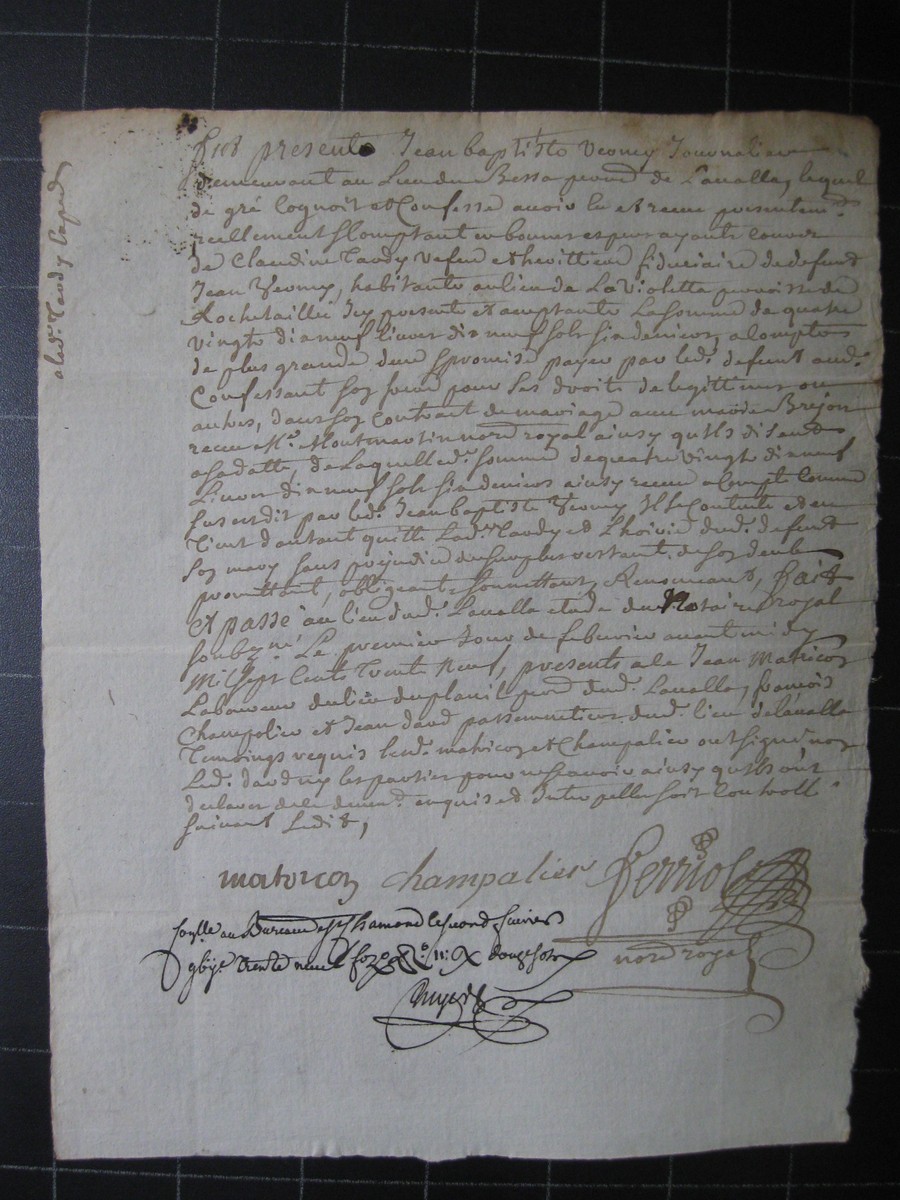 fut present Jean baptiste Veomy Journalier
demeurant au Lieu du Bessa parr.e de Lavalla, lequel
de gré Cognoit et Confesse avoir heu et receu presentem.t
reellement et Comptant en bonnes espe ayant Cours
de Claudine Tardy vefve et heritiere fiduciaire de defunt
Jean Veomy, habitante au lieu de La Violetta parroisse de
Rochetaillée Icy presente et acceptante La Somme de quatre
vingts dix neuf Livres dix neuf sols six deniers, a Compte
de plus grande deue et promise payer par led. defunt aud.
Confessant son frere pour Ses droits de legittimes ou
autres, dans son Contract de mariage avec marie Brejon
receu M.e Montmartin no.re royal ainsy qu'ils disent
a Sa datte, de Laquelle d. Somme de quatre vingts dix neuf
Livres dix neuf sols six deniers ainsy receue a Compte Comme
sus est dit par led. Jean baptiste Veomy Il Se Contente et en
tient d'autant quitte Lad. Tardy et L'hoirie dud. defunt
son mary sans prejudice du surplus restant de son deub
promettant, obligeant, Soumettant, Renonceant, fait
et passé au lieu dud. Lavalla etude du Notaire royal
soubz.né Le premier Jour de febvrier avant midy
Mil Sept Cents Trente Neuf, presents a ce Jean Matricon
Laboureur du lieu du planil parr.e dud. Lavalla, francois
Champalier et Jean david passementier dud. lieu de Lavalla
Temoings requis Lesd. matricon et Champalier ont signé non
Led. david ny les parties pour ne scavoir ainsy qu'ils ont
declaré de ce deuem.t enquis et Interpellé soit Controllé
suivant Ledit,
matricon champalier Ferriol
no.re royal
Con.lle au Bureau de St Chamond le second fevrier
trente neuf fo. douze sols
a lad. Tardy